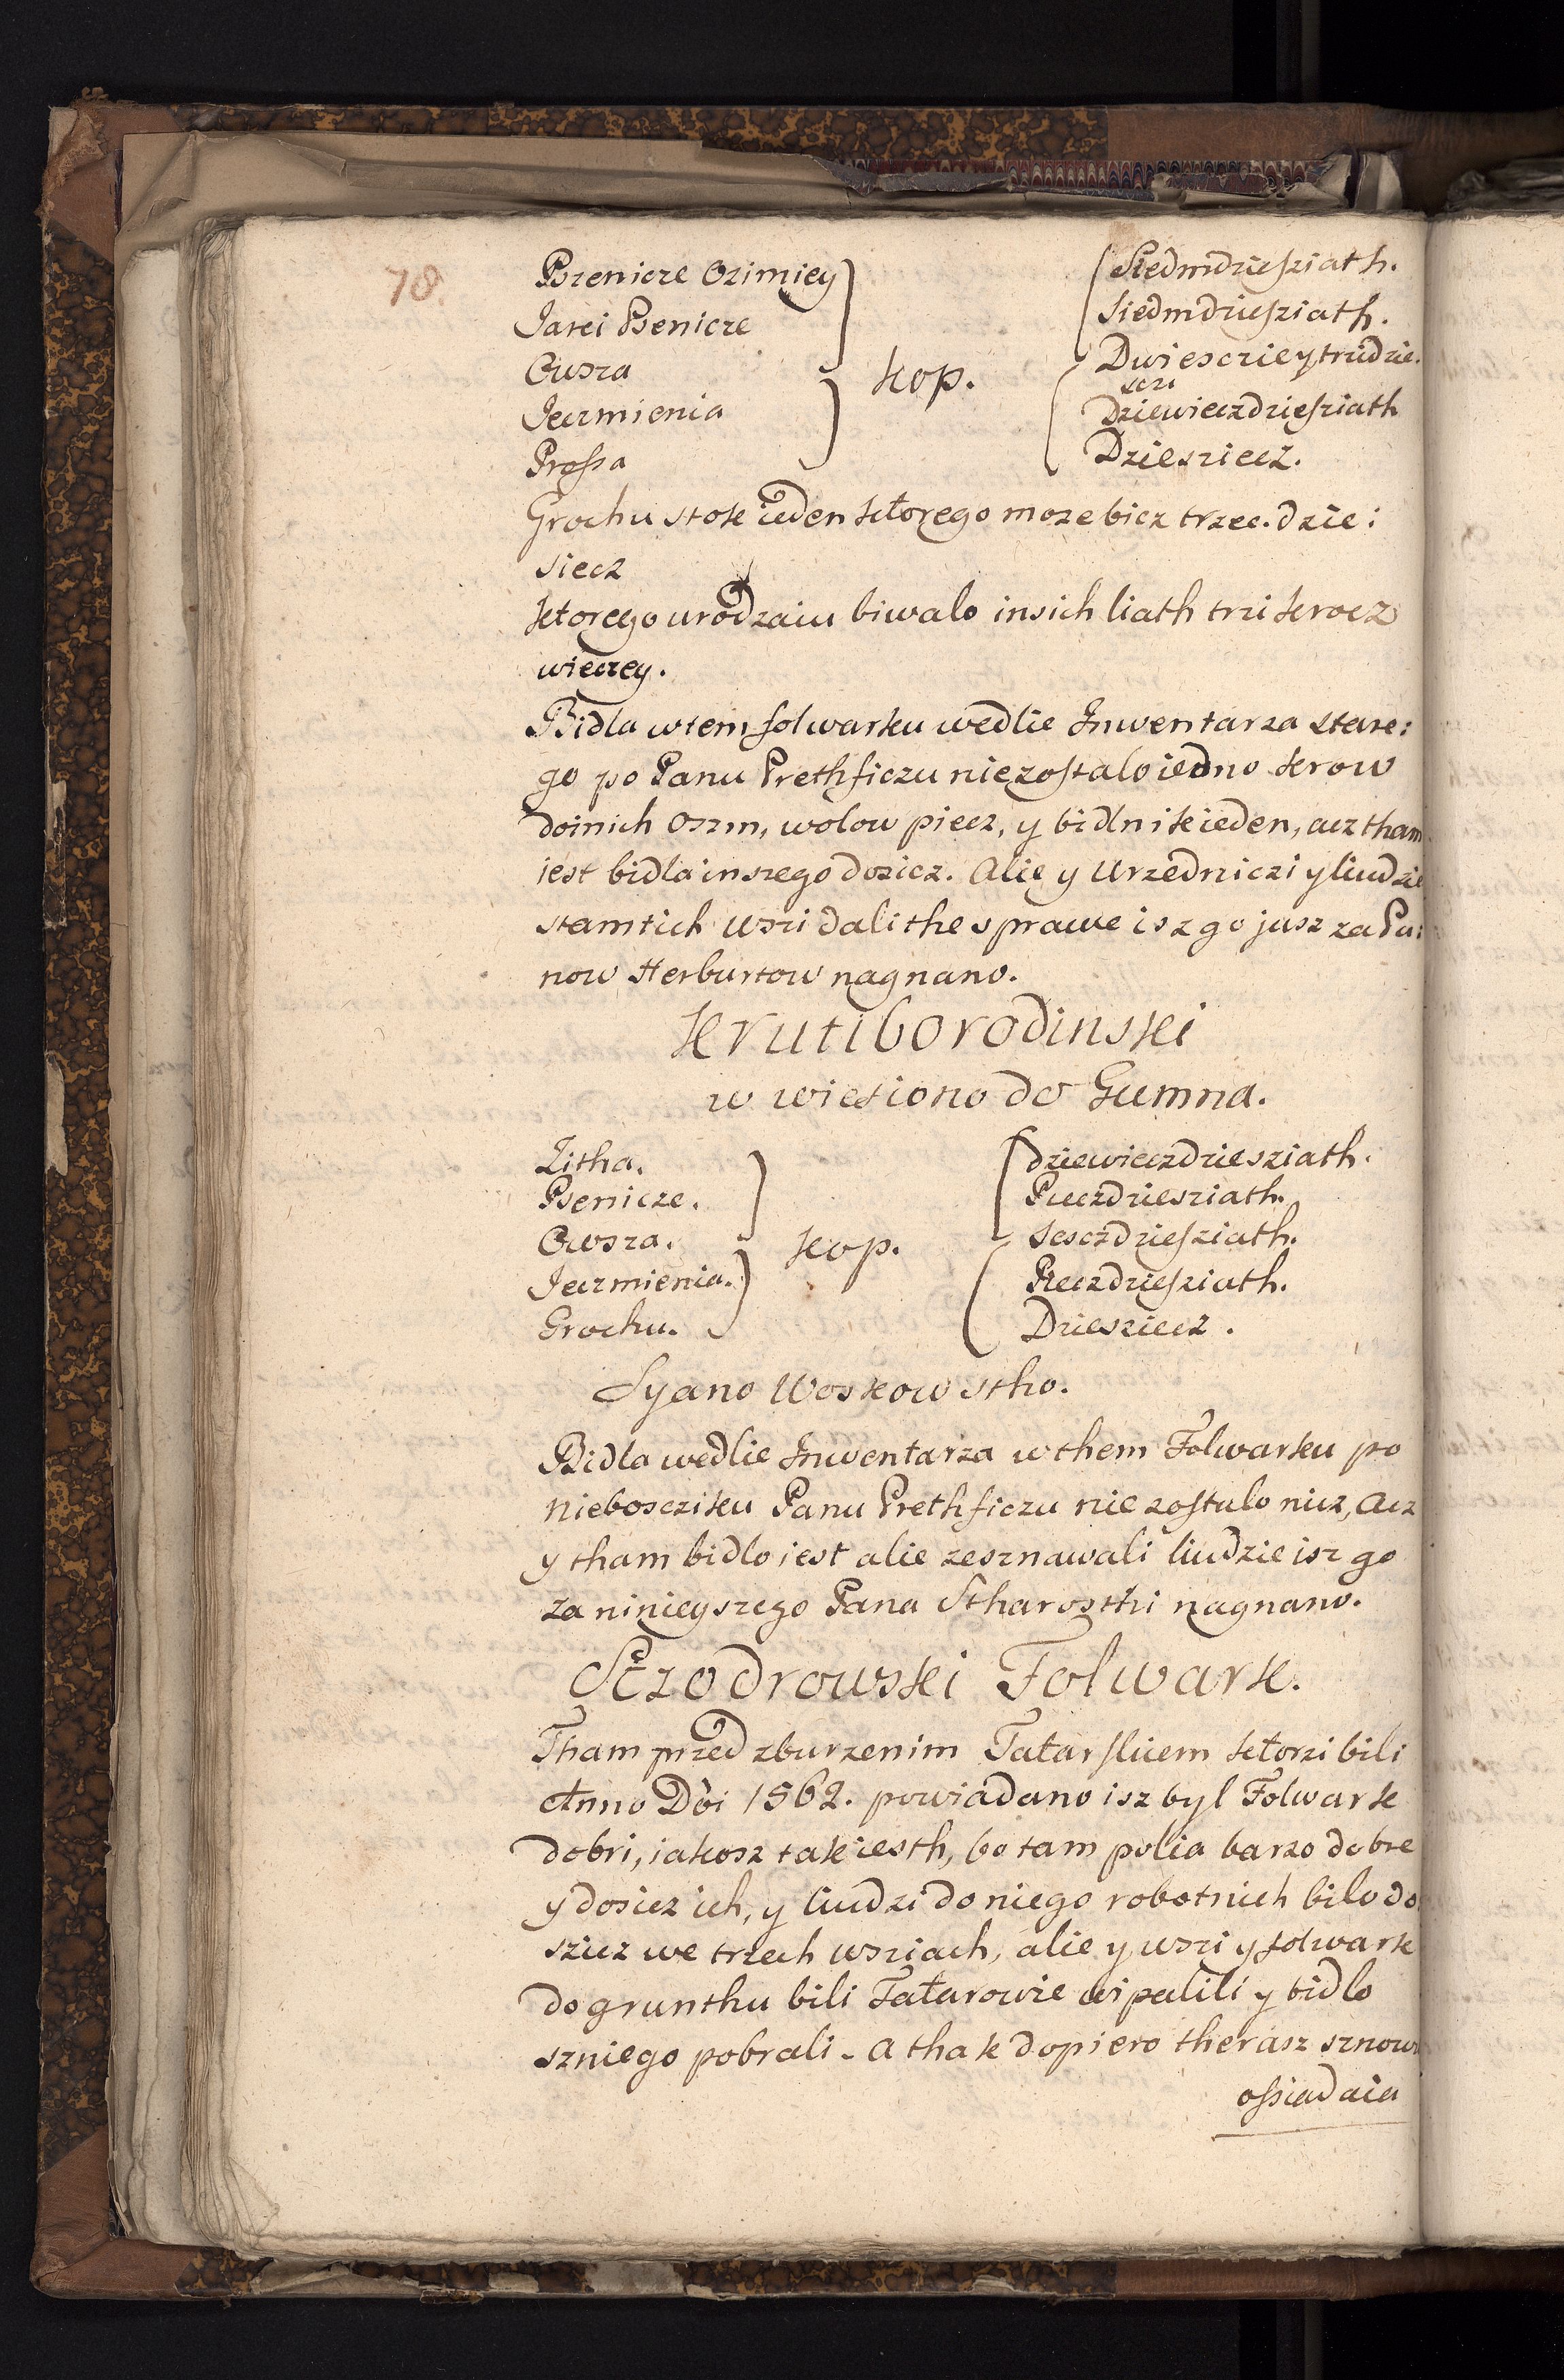 78.
Pszenicze Ozimiey Siedmdziesziath.
Jarei Psenicze Siedmdziesziath.
Owsza kop. Dwiesczie y trzidzie.
sczi
Jeczmienia Dziewieczdziesziath
Prossa Dziesziecz.
Grochu stok ieden ktorego moze bicz trzec. dzie:
siecz
ktorego urodzaiu biwalo inszich liath trzi krocz
wieczey.
Bidla w tem folwarku wedlie Inwentarza stare:
go po Panu Prethficzu nie zostalo iedno krow
doinich oszm, wolow piecz, y bidlnik ieden, acz tham
iest bidla inszego dosicz. Alie y Urzedniczi y liudzie
stamtich wszi dali the sprawe isz go jusz za Pa:
now Herburtow nagnano.
Krutiborodinski
w wiesiono do Gumna.
Zitha. dziewieczdziesziath.
Psenicze. Pieczdziesziath.
Owsza. kop. Sesczdziesziath.
Jeczmienia. Pieczdziesziath.
Grochu. Dziesziecz.
Syano Woskowstho.
Bidla wedlie Inwentarza w them Folwarku po
Nieboscziku Panu Prethficzu nie zostalo nicz, Acz
y tham bidlo iest alie zesznawali liudzie isz go
za ninieyszego Pana Stharosthi nagnano.
Sczodrowski Folwark.
Tham przed zburzenim Tatarskiem ktorzi bili
Anno Dni 1562. powiadano isz byl Folwark
dobri, iakosz tak iesth, bo tam polia barzo dobre
y dosicz ich, y liudzi do niego robotnich bilo do
szicz we trzech wsziach, alie y wszi y folwark
do grunthu bili Tatarowie wipalili y bidlo
szniego pobrali - a thak dopiero therasz sznowu
ossiadaia